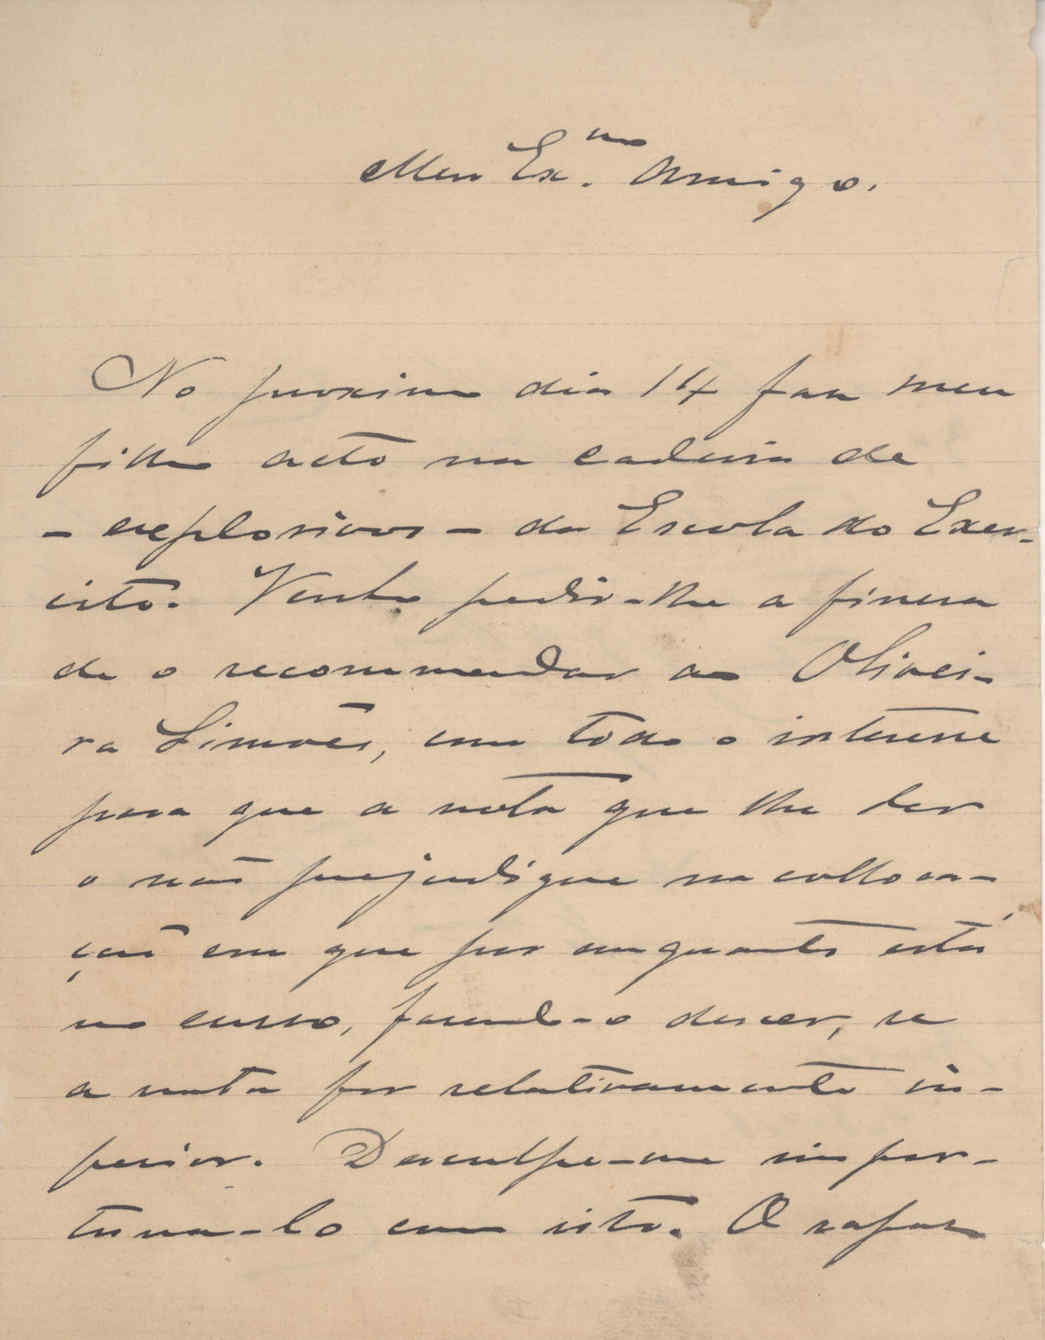 Meu Ex.mo Amigo.
No proximo dia 14 faz meu
filho acto na cadeira de
- explosivos - da Escola do Exer-
cito. Venho pedir-lhe a fineza
de o recommendar ao Olivei-
ra Simões, com todo o interesse
para que a nota que lhe der
o não prejudique na colloca-
ção em que por emquanto está
no curso, fazendo-o descer, se
a nota for relativamente in-
ferior. Desculpe-me impor-
tuna-lo com isto. O rapaz